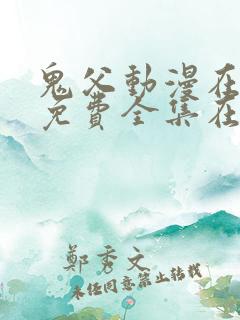 鬼父動漫在
免費全集在
鄭秀文
未经同意禁止转载